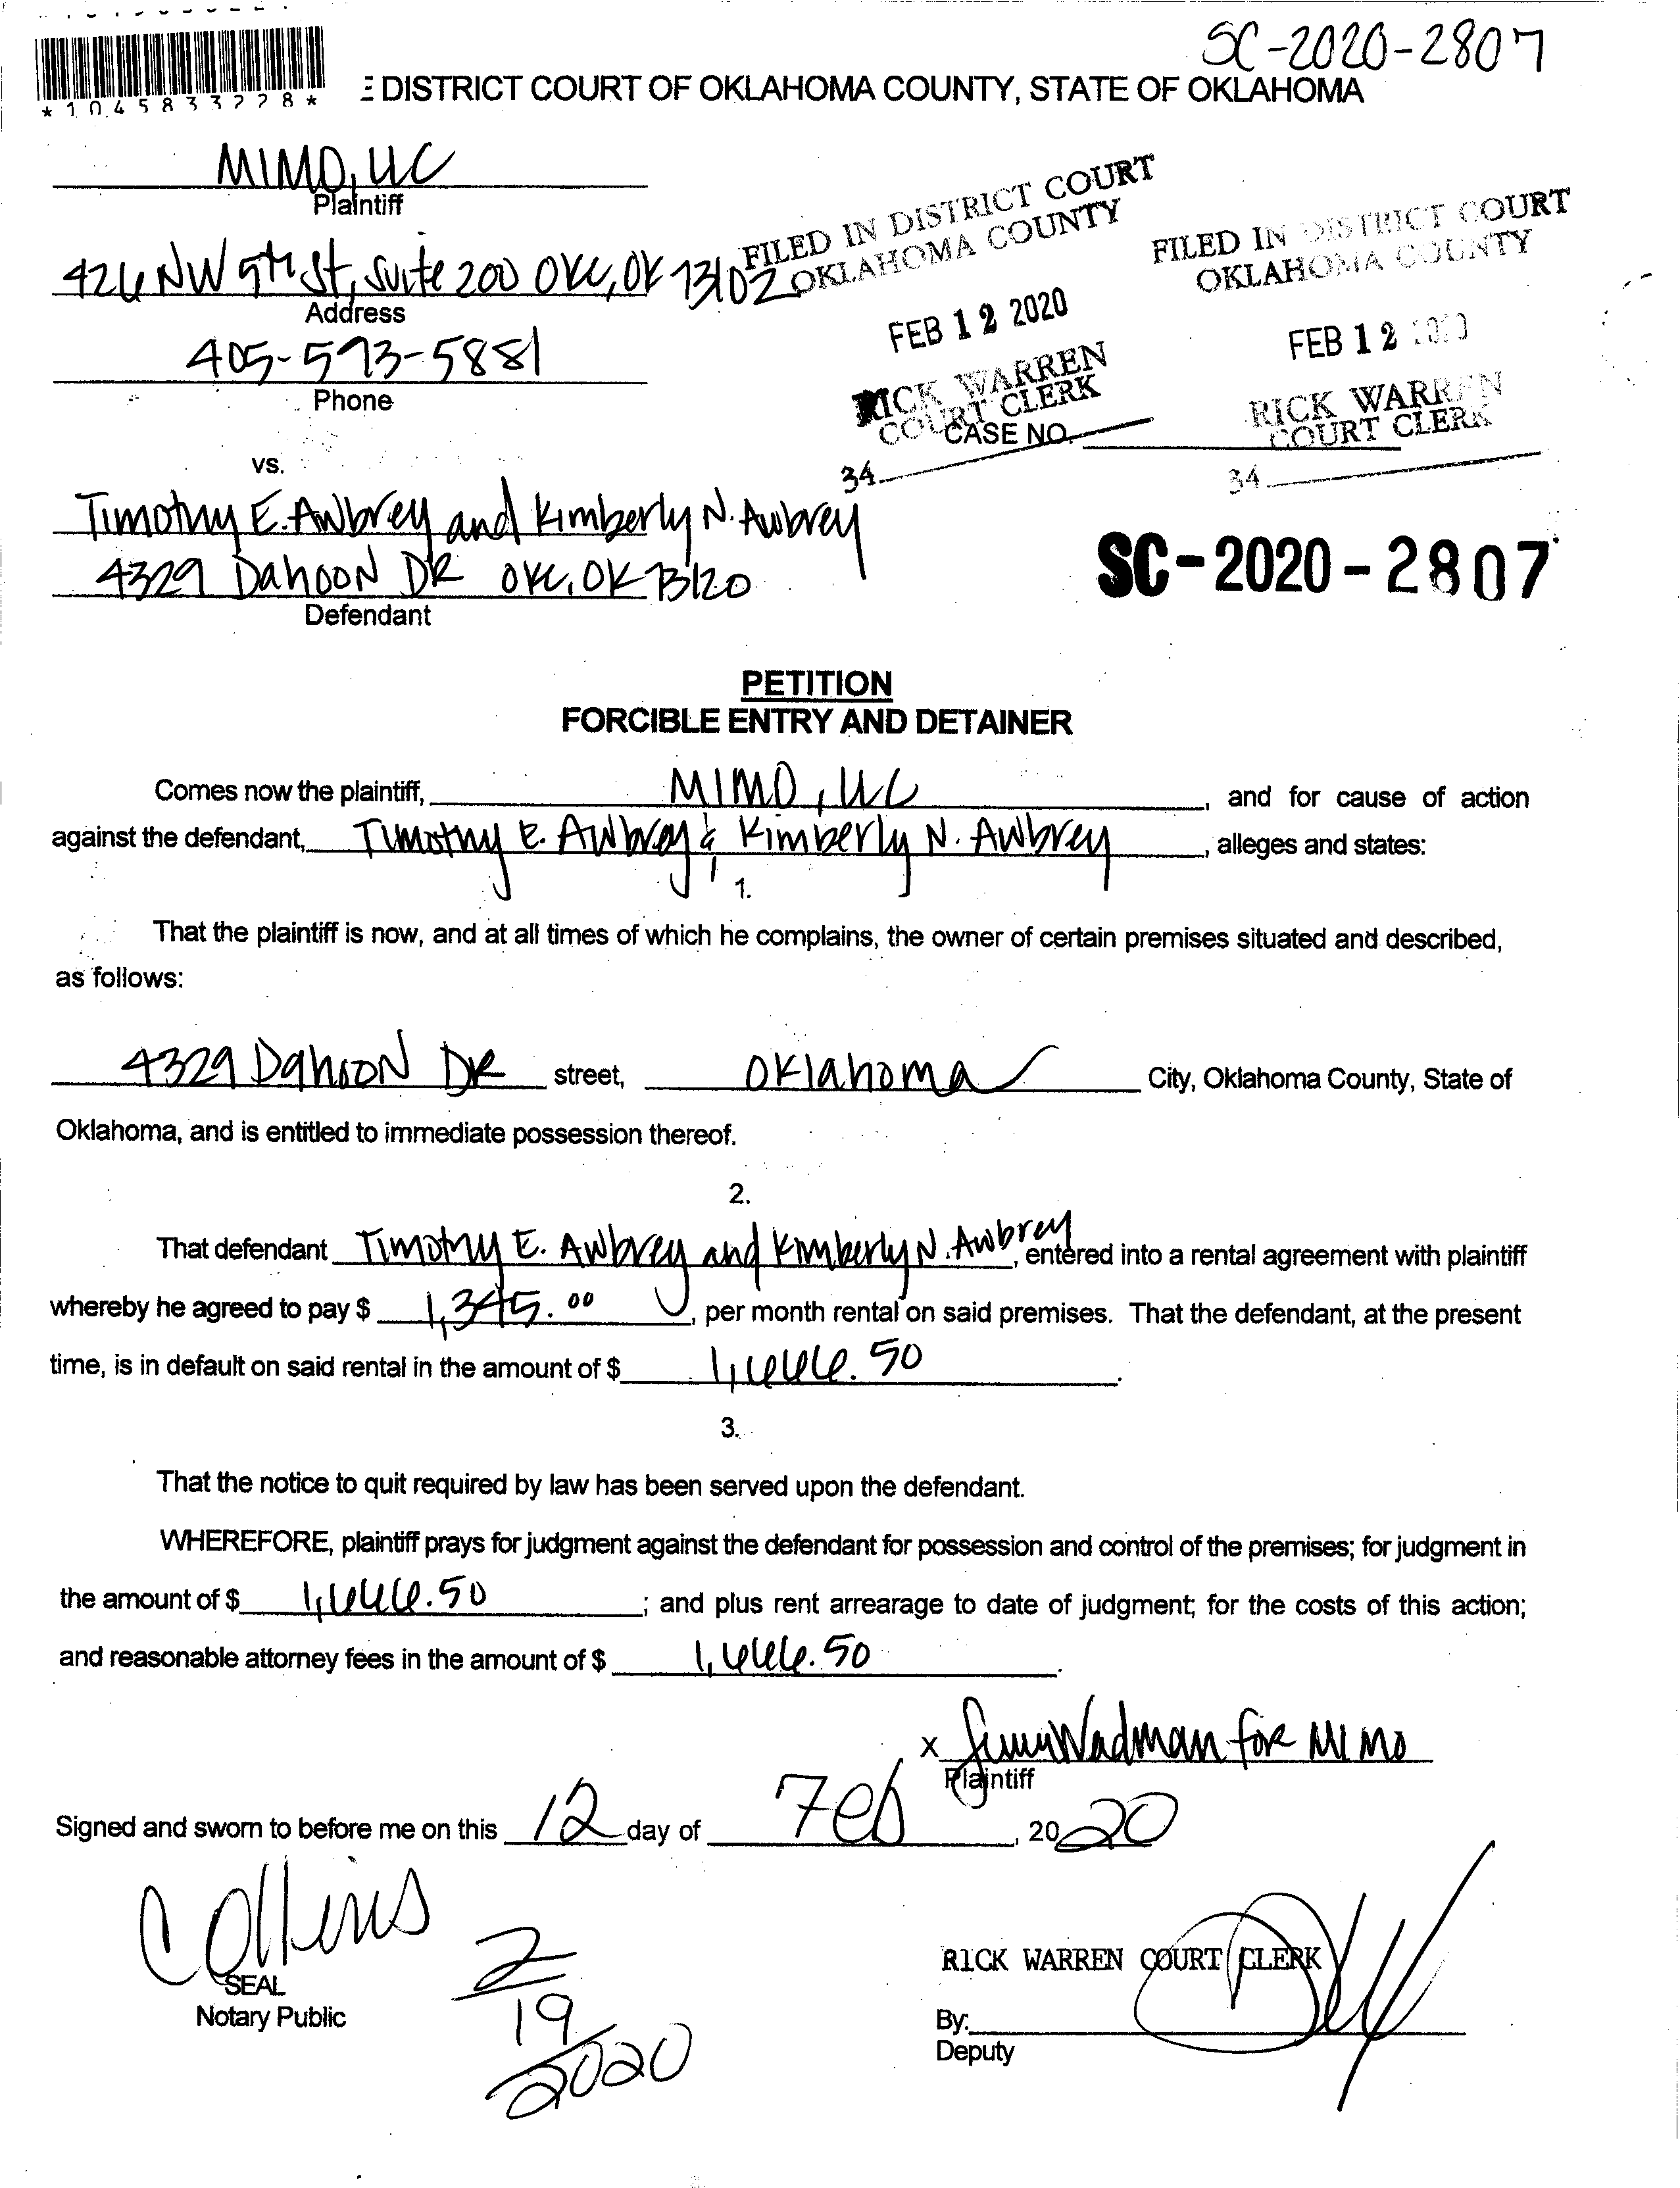 SC-2020-2807
*1045833778*
E DISTRICT COURT OF OKLAHOMA COUNTY, STATE OF OKLAHOMA
MIMO, LLC
Plaintiff
426 NW 5th St, Suite 200 OKC, OK 73102
Address
405-593-5881
Phone
FILED IN DISTRICT COURT
OKLAHOMA COUNTY
FEB 12 2020
RICK WARREN
COURT CLERK
34
FILED IN DISTRICT COURT
OKLAHOMA COUNTY
FEB 12 2020
RICK WARREN
COURT CLERK
34
CASE NO.
vs.
Timothy E. Awbrey and Kimberly N. Awbrey
4329 Dahoon DR OKC, OK 73120
Defendant
SC-2020-2807
PETITION
FORCIBLE ENTRY AND DETAINER
Comes now the plaintiff, MIMO, LLC, and for cause of action
against the defendant, Timothy E. Awbrey & Kimberly N. Awbrey, alleges and states:
1.
That the plaintiff is now, and at all times of which he complains, the owner of certain premises situated and described,
as follows:
4329 Dahoon DR street, Oklahoma City, Oklahoma County, State of
Oklahoma, and is entitled to immediate possession thereof.
2.
That defendant Timothy E. Awbrey and Kimberly N. Awbrey, entered into a rental agreement with plaintiff
whereby he agreed to pay $ 1,345.00, per month rental on said premises. That the defendant, at the present
time, is in default on said rental in the amount of $ 1,666.50.
3.
That the notice to quit required by law has been served upon the defendant.
WHEREFORE, plaintiff prays for judgment against the defendant for possession and control of the premises; for judgment in
the amount of $ 1,666.50; and plus rent arrearage to date of judgment; for the costs of this action;
and reasonable attorney fees in the amount of $ 1,666.50.
x Wadman for MIMO
Plaintiff
Signed and sworn to before me on this 12 day of Feb, 2020
Collins
2/19/2020
SEAL
Notary Public
RICK WARREN COURT CLERK
By:
Deputy